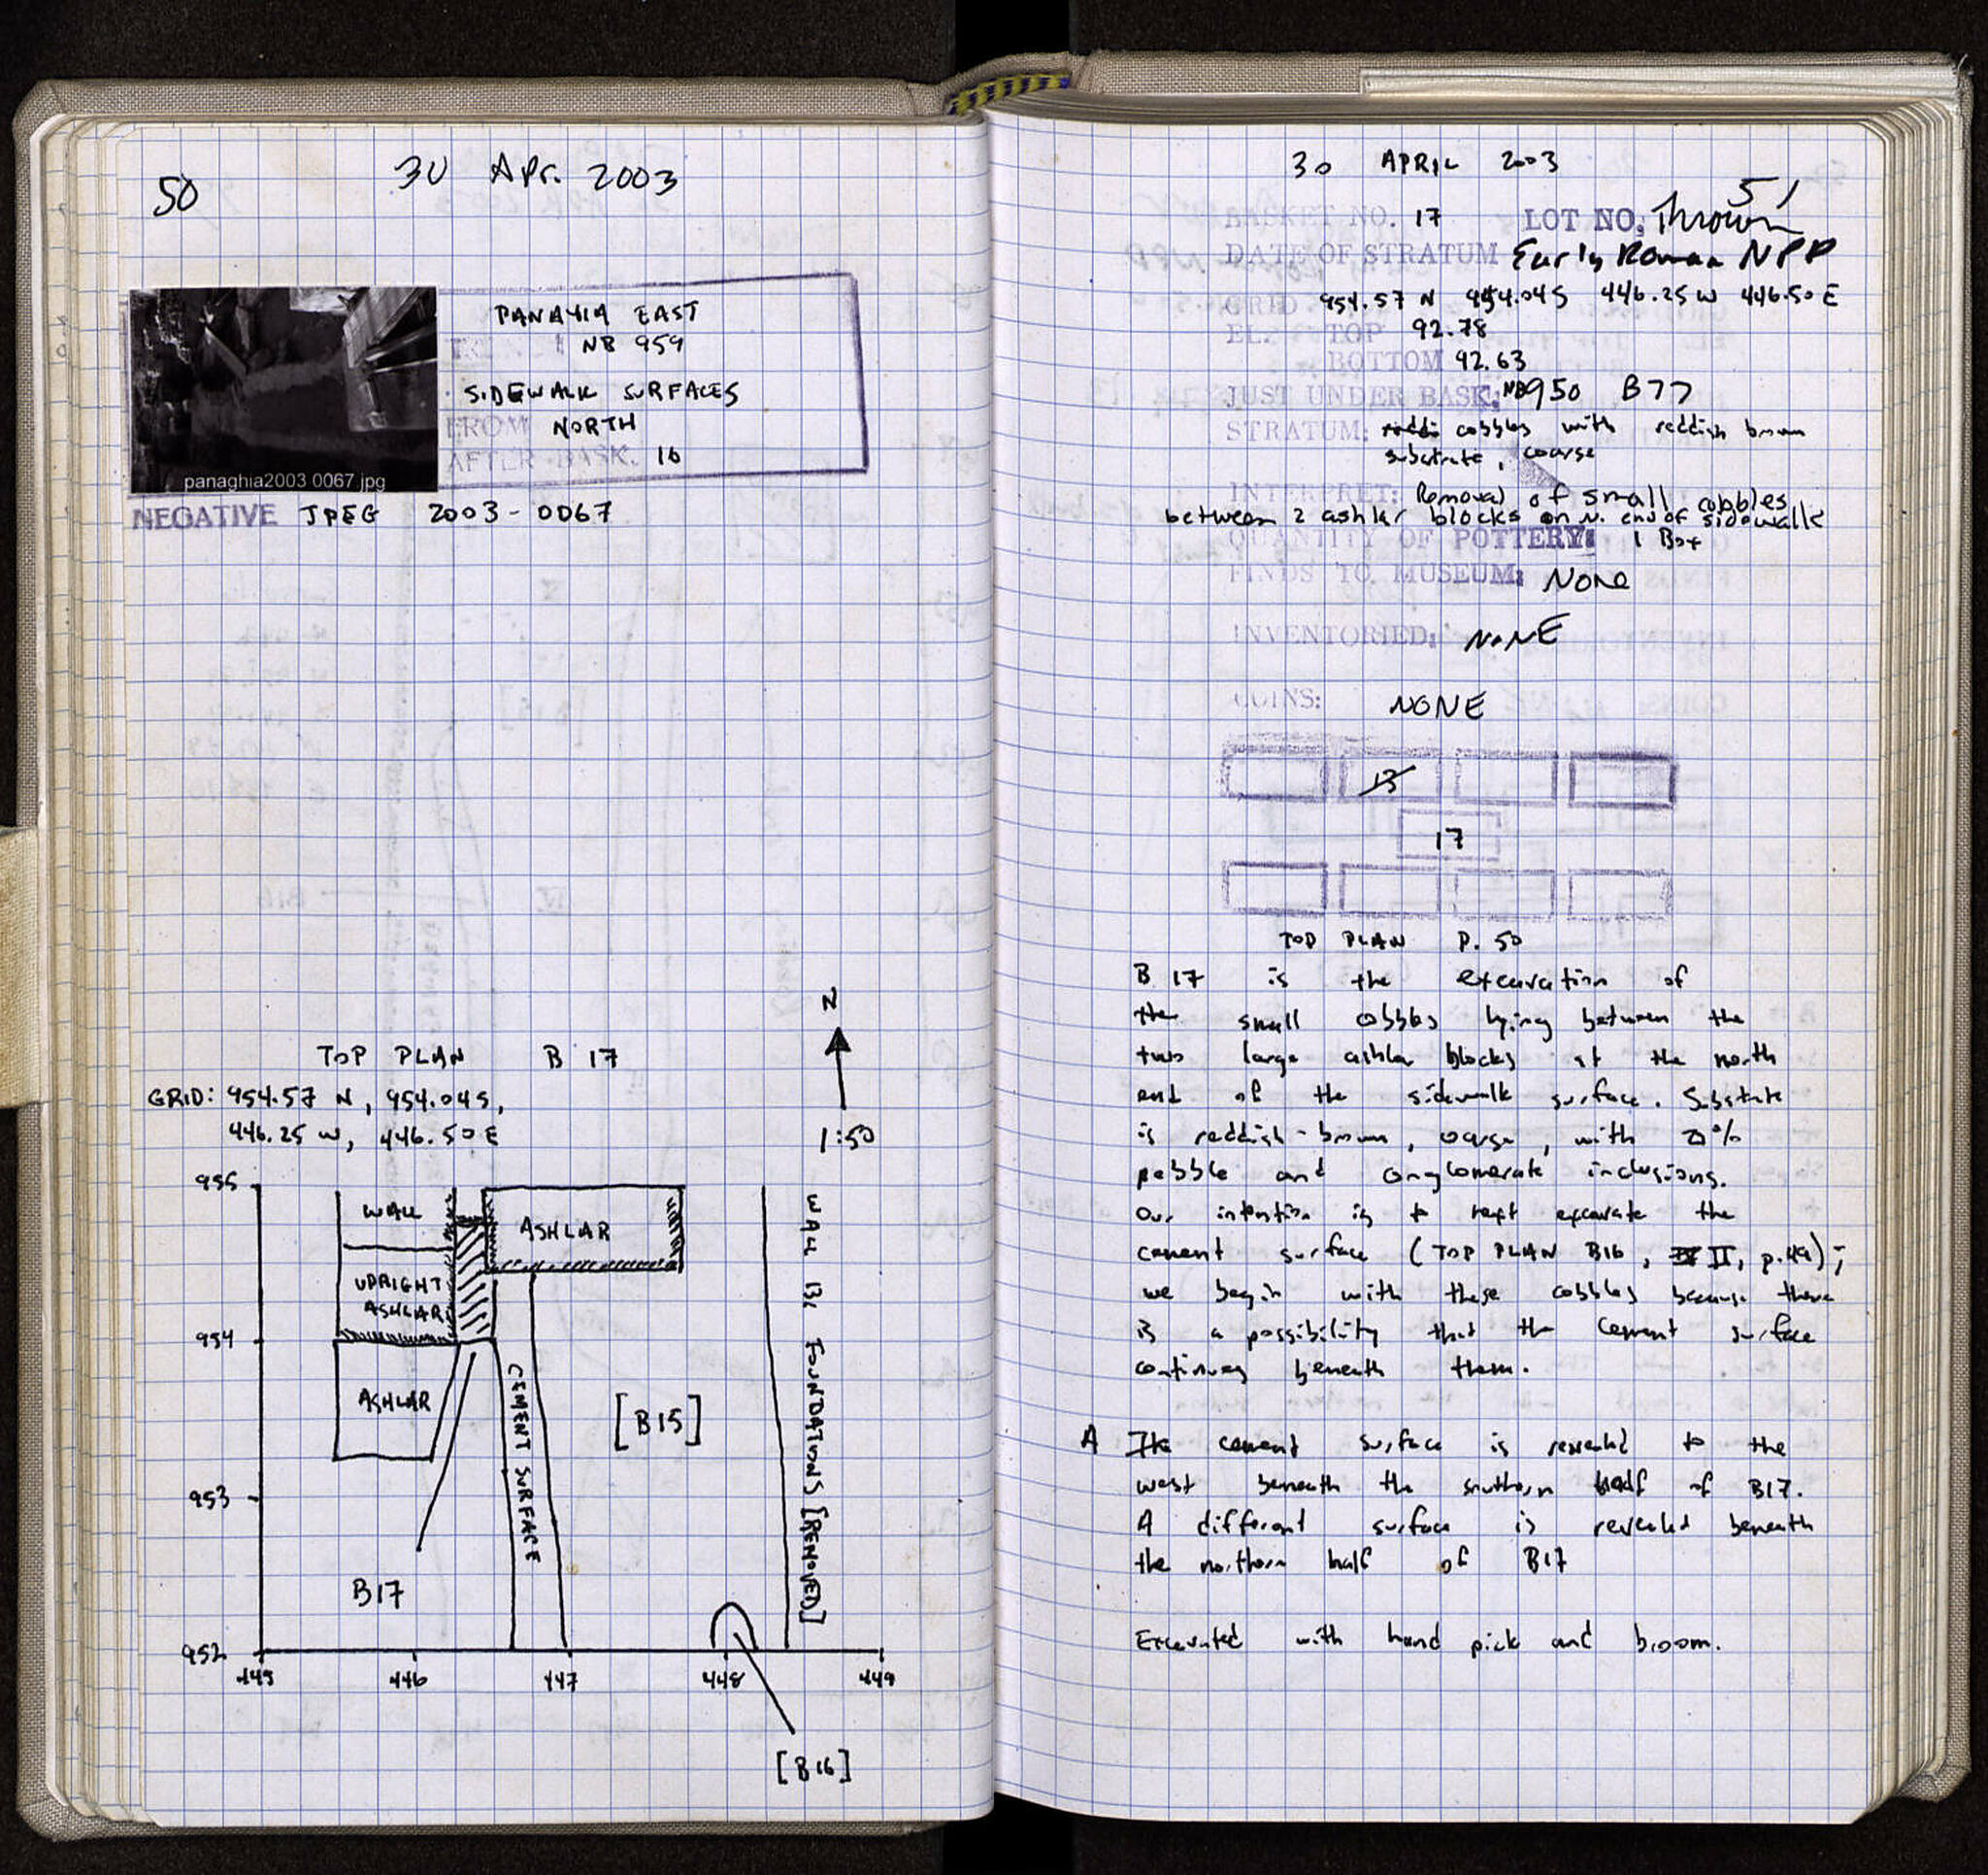 50
30 Apr. 2003
PANAYIA EAST
NB 959
SIDEWALK SURFACES
FROM NORTH
AFTER BASK. 16
panaghia2003 0067.jpg
NEGATIVE JPEG 2003-0067
N
TOP PLAN B 17
GRID: 954.57 N, 954.04 S,
446.25 W, 446.50 E
1:50
955
WALL
ASHLAR
UPRIGHT
ASHLAR
954
ASHLAR
CEMENT SURFACE
[B15]
WALL 13, FOUNDATIONS [REMOVED]
953
B17
952
445 446 447 448 449
[B16]
30 APRIL 2003
51
BASKET NO. 17 LOT NO. Thrown
DATE OF STRATUM Early Roman NPD
GRID 954.57 N 954.04 S 446.25 W 446.50 E
EL. TOP 92.78
BOTTOM 92.63
JUST UNDER BASK: NB950 B77
STRATUM: cobbles with reddish brown
substrate, coarse
INTERPRET: Removal of small cobbles
between 2 ashlar blocks on N. end of sidewalk
QUANTITY OF POTTERY: 1 Box
FINDS TO MUSEUM: None
INVENTORIED: NONE
COINS: NONE
17
TOP PLAN P. 50
B 17 is the excavation of
the small cobbles lying between the
two large ashlar blocks at the north
end of the sidewalk surface. Substrate
is reddish-brown, coarse, with %
pebble and conglomerate inclusions.
Our intention is to next excavate the
cement surface (TOP PLAN B16, II, p.49);
we begin with these cobbles because there
is a possibility that the cement surface
continues beneath them.
A The cement surface is revealed to the
west beneath the southern half of B17.
A different surface is revealed beneath
the northern half of B17
Excavated with hand pick and broom.